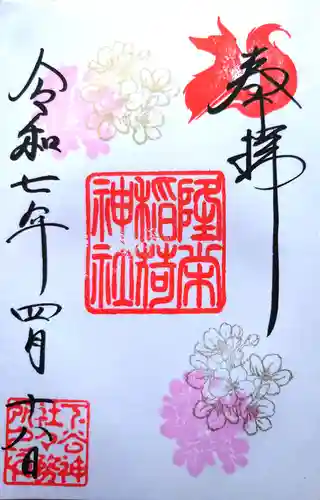 奉拝
隆栄
稲荷
神社
令和七年四月十八日
下谷神
社